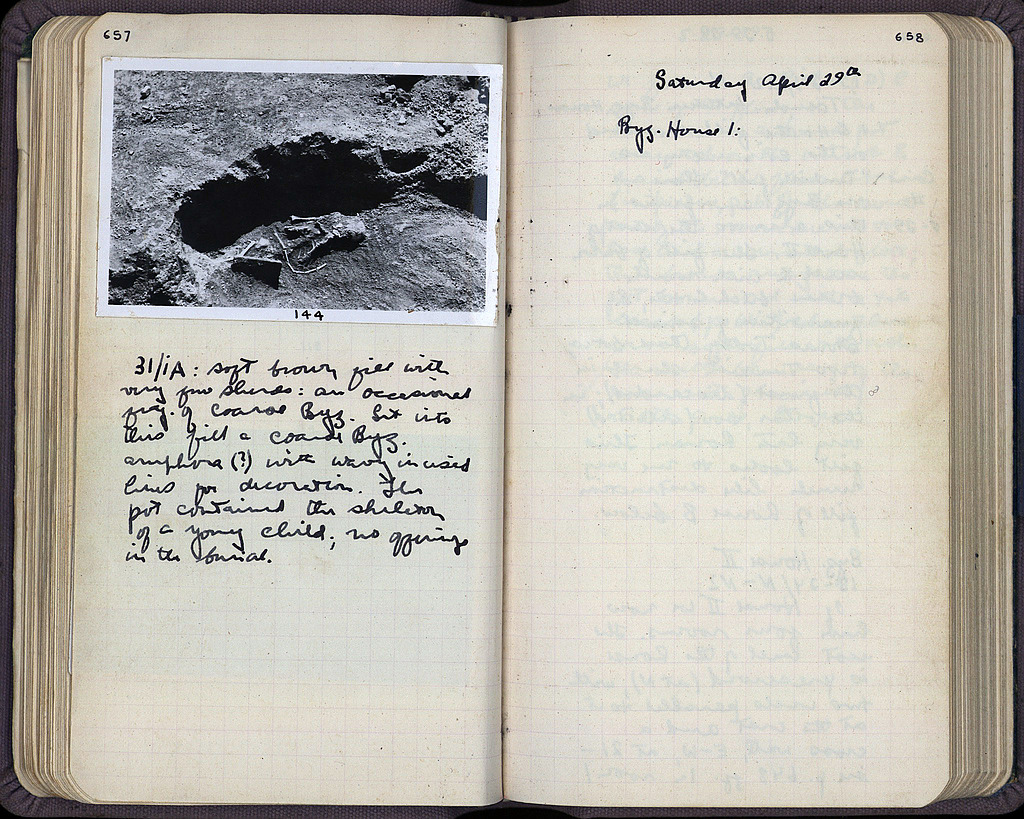 657
144
31/1A: soft brown fill with
very few sherds: an occasional
frag. of coarse Byz. Set into
this fill a coarse Byz.
amphora (?) with wavy incised
lines for decoration. The
pot contained the skeleton
of a young child; no offerings
in the burial.
658
Saturday April 29th
Byz. House 1: